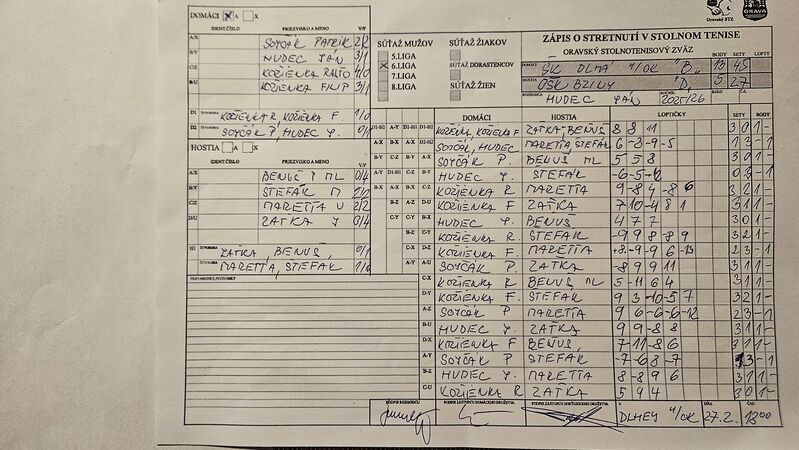 Oravský STZ
ORAVA
DOMÁCI X A X
IDENT.ČÍSLO PRIEZVISKO A MENO V/P
A/X SOYČÁK PATRIK 2/2
B/Y HUDEC JÁN 3/1
C/Z KOZIENKA RASŤO 4/0
D/U KOZIENKA FILIP 3/1
D1 ŠTVORHRA KOZIENKA R, KOZIENKA F. 1/0
D2 ŠTVORHRA SOYČÁK P, HUDEC J. 0/1
HOSTIA A X
IDENT.ČÍSLO PRIEZVISKO A MENO V/P
A/X BENUŠ P ML 0/4
B/Y ŠTEFÁK M 2/2
C/Z MARETTA V 2/2
D/U ZAŤKA J 0/4
H1 ŠTVORHRA ZAŤKA, BENUŠ, 0/1
ŠTVORHRA MARETTA, ŠTEFÁK 1/0
PRIPOMIENKY, POZNÁMKY
SÚŤAŽ MUŽOV
5.LIGA
X 6.LIGA
7.LIGA
8.LIGA
SÚŤAŽ ŽIAKOV
SÚŤAŽ DORASTENCOV
SÚŤAŽ ŽIEN
ZÁPIS O STRETNUTÍ V STOLNOM TENISE
ORAVSKÝ STOLNOTENISOVÝ ZVÄZ
BODY SETY LOPTY
DOMÁCI ŠK DLHÁ N/OR "B" 13 45
HOSTIA OŠK BZINY "D" 5 27
ROZHODCA HUDEC JÁN ROČNÍK 2025/26 KOLO Č.
DOMÁCI HOSTIA LOPTIČKY SETY BODY
D1-H1 A-Y D1-H1 D1-H1 KOZIENKA, KOZIENKA F. ZAŤKA, BENUŠ 8 8 11 3 0 1 -
A-X B-X A-X D2-H2 SOYČÁK, HUDEC MARETTA, ŠTEFÁK 6 -8 -9 -5 1 3 - 1
B-Y C-Z B-Y A-X SOYČÁK P. BENUŠ ML 5 5 8 3 0 1 -
A-Y D1-H1 C-Z B-Y HUDEC J. ŠTEFÁK -6 -5 -12 0 3 - 1
B-X A-X A-Y C-Z KOZIENKA R MARETTA 9 -8 4 -8 6 3 2 1 -
B-Z A-Z D-U KOZIENKA F. ZAŤKA 7 10 -4 8 1 3 1 1 -
C-Y C-Y B-X HUDEC J. BENUŠ 4 7 7 3 0 1 -
B-Z C-Y KOZIENKA R. ŠTEFÁK -9 9 8 9 3 1 1 -
C-X D-Z KOZIENKA F. MARETTA +8 -9 -9 6 -13 2 3 - 1
A-Y A-U SOYČÁK P. ZAŤKA -8 9 9 11 3 1 1 -
C-X KOZIENKA R BENUŠ ML 5 -11 6 4 3 1 1 -
D-Y KOZIENKA F. ŠTEFÁK 9 3 -10 -5 7 3 2 1 -
A-Z SOYČÁK P MARETTA 9 6 -6 -6 -12 2 3 - 1
B-U HUDEC J. ZAŤKA 9 9 -8 8 3 1 1 -
D-X KOZIENKA F BENUŠ, 7 11 -8 6 3 1 1 -
A-Y SOYČÁK P ŠTEFÁK -7 -6 8 -7 1 3 - 1
B-Z HUDEC J. MARETTA 8 -8 9 6 3 1 1 -
C-U KOZIENKA R ZAŤKA 5 9 4 3 0 1 -
PODPIS ROZHODCU PODPIS ZÁSTUPCU DOMÁCEHO DRUŽSTVA PODPIS ZÁSTUPCU HOSŤUJÚCEHO DRUŽSTVA V DŇA ČAS
DLHEJ N/OR 27.2. 18:00